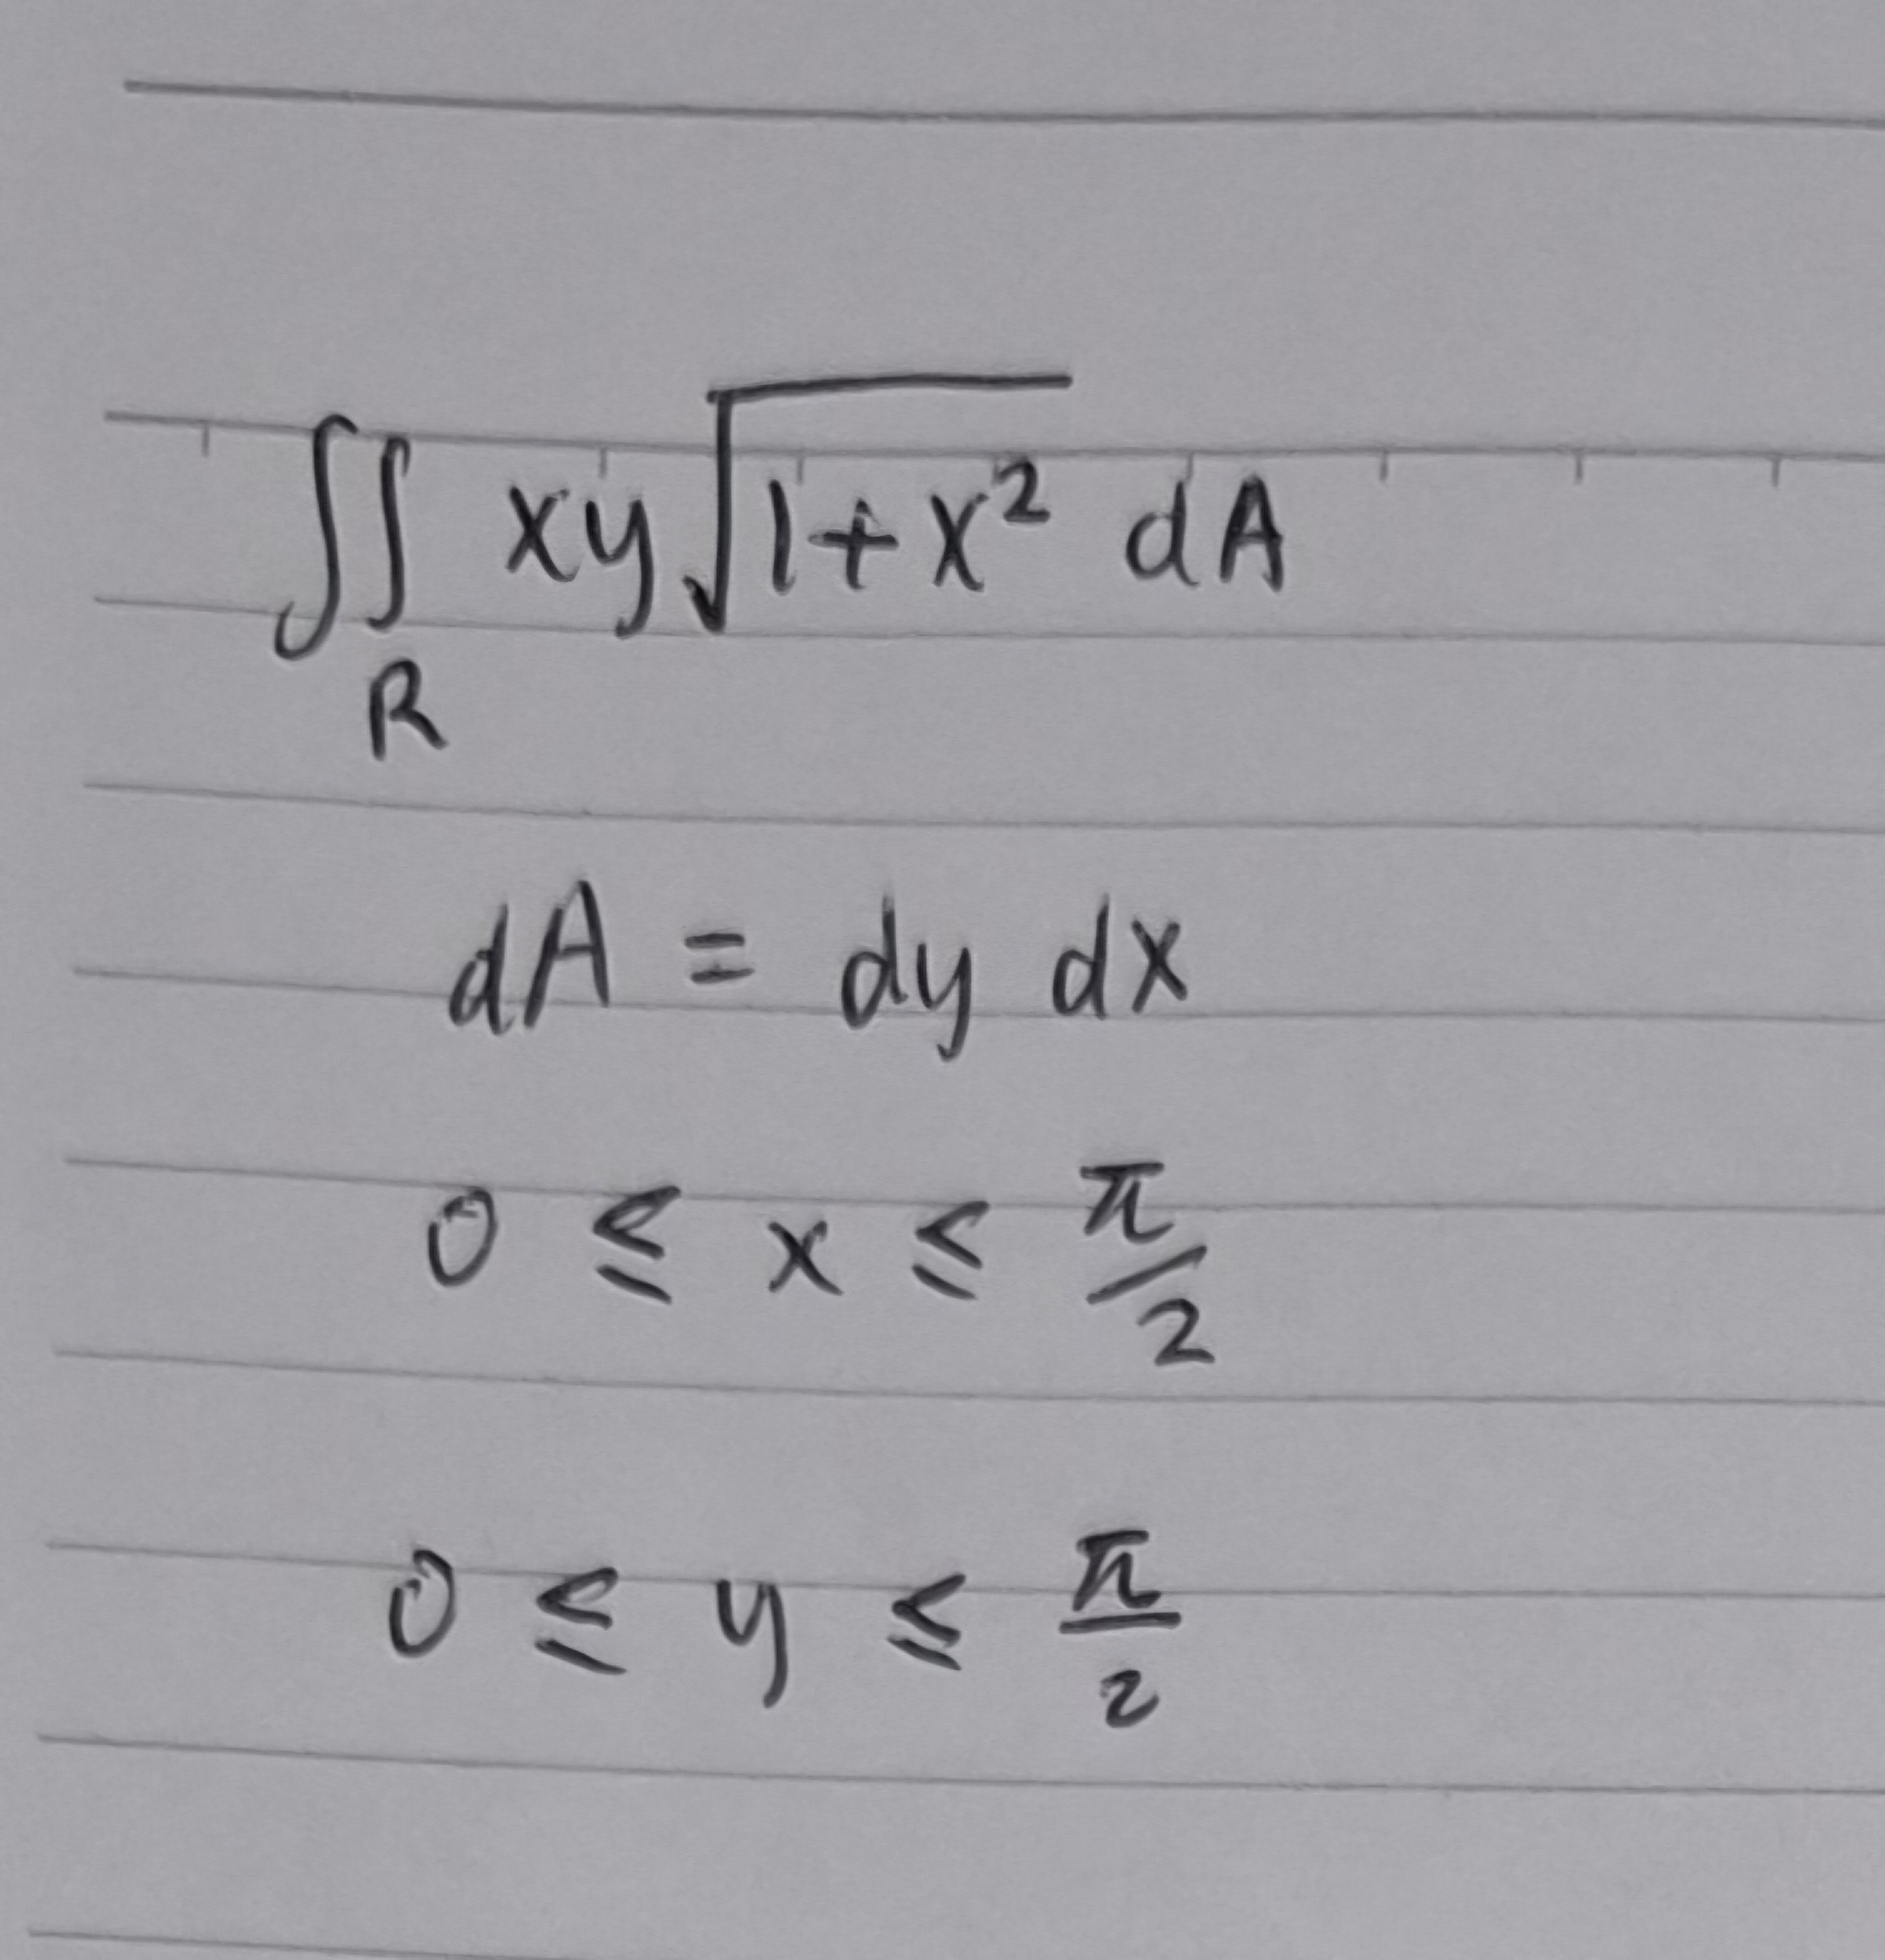 ∬_R xy√(1+x²) dA
dA = dy dx
0 ≤ x ≤ π/2
0 ≤ y ≤ π/2